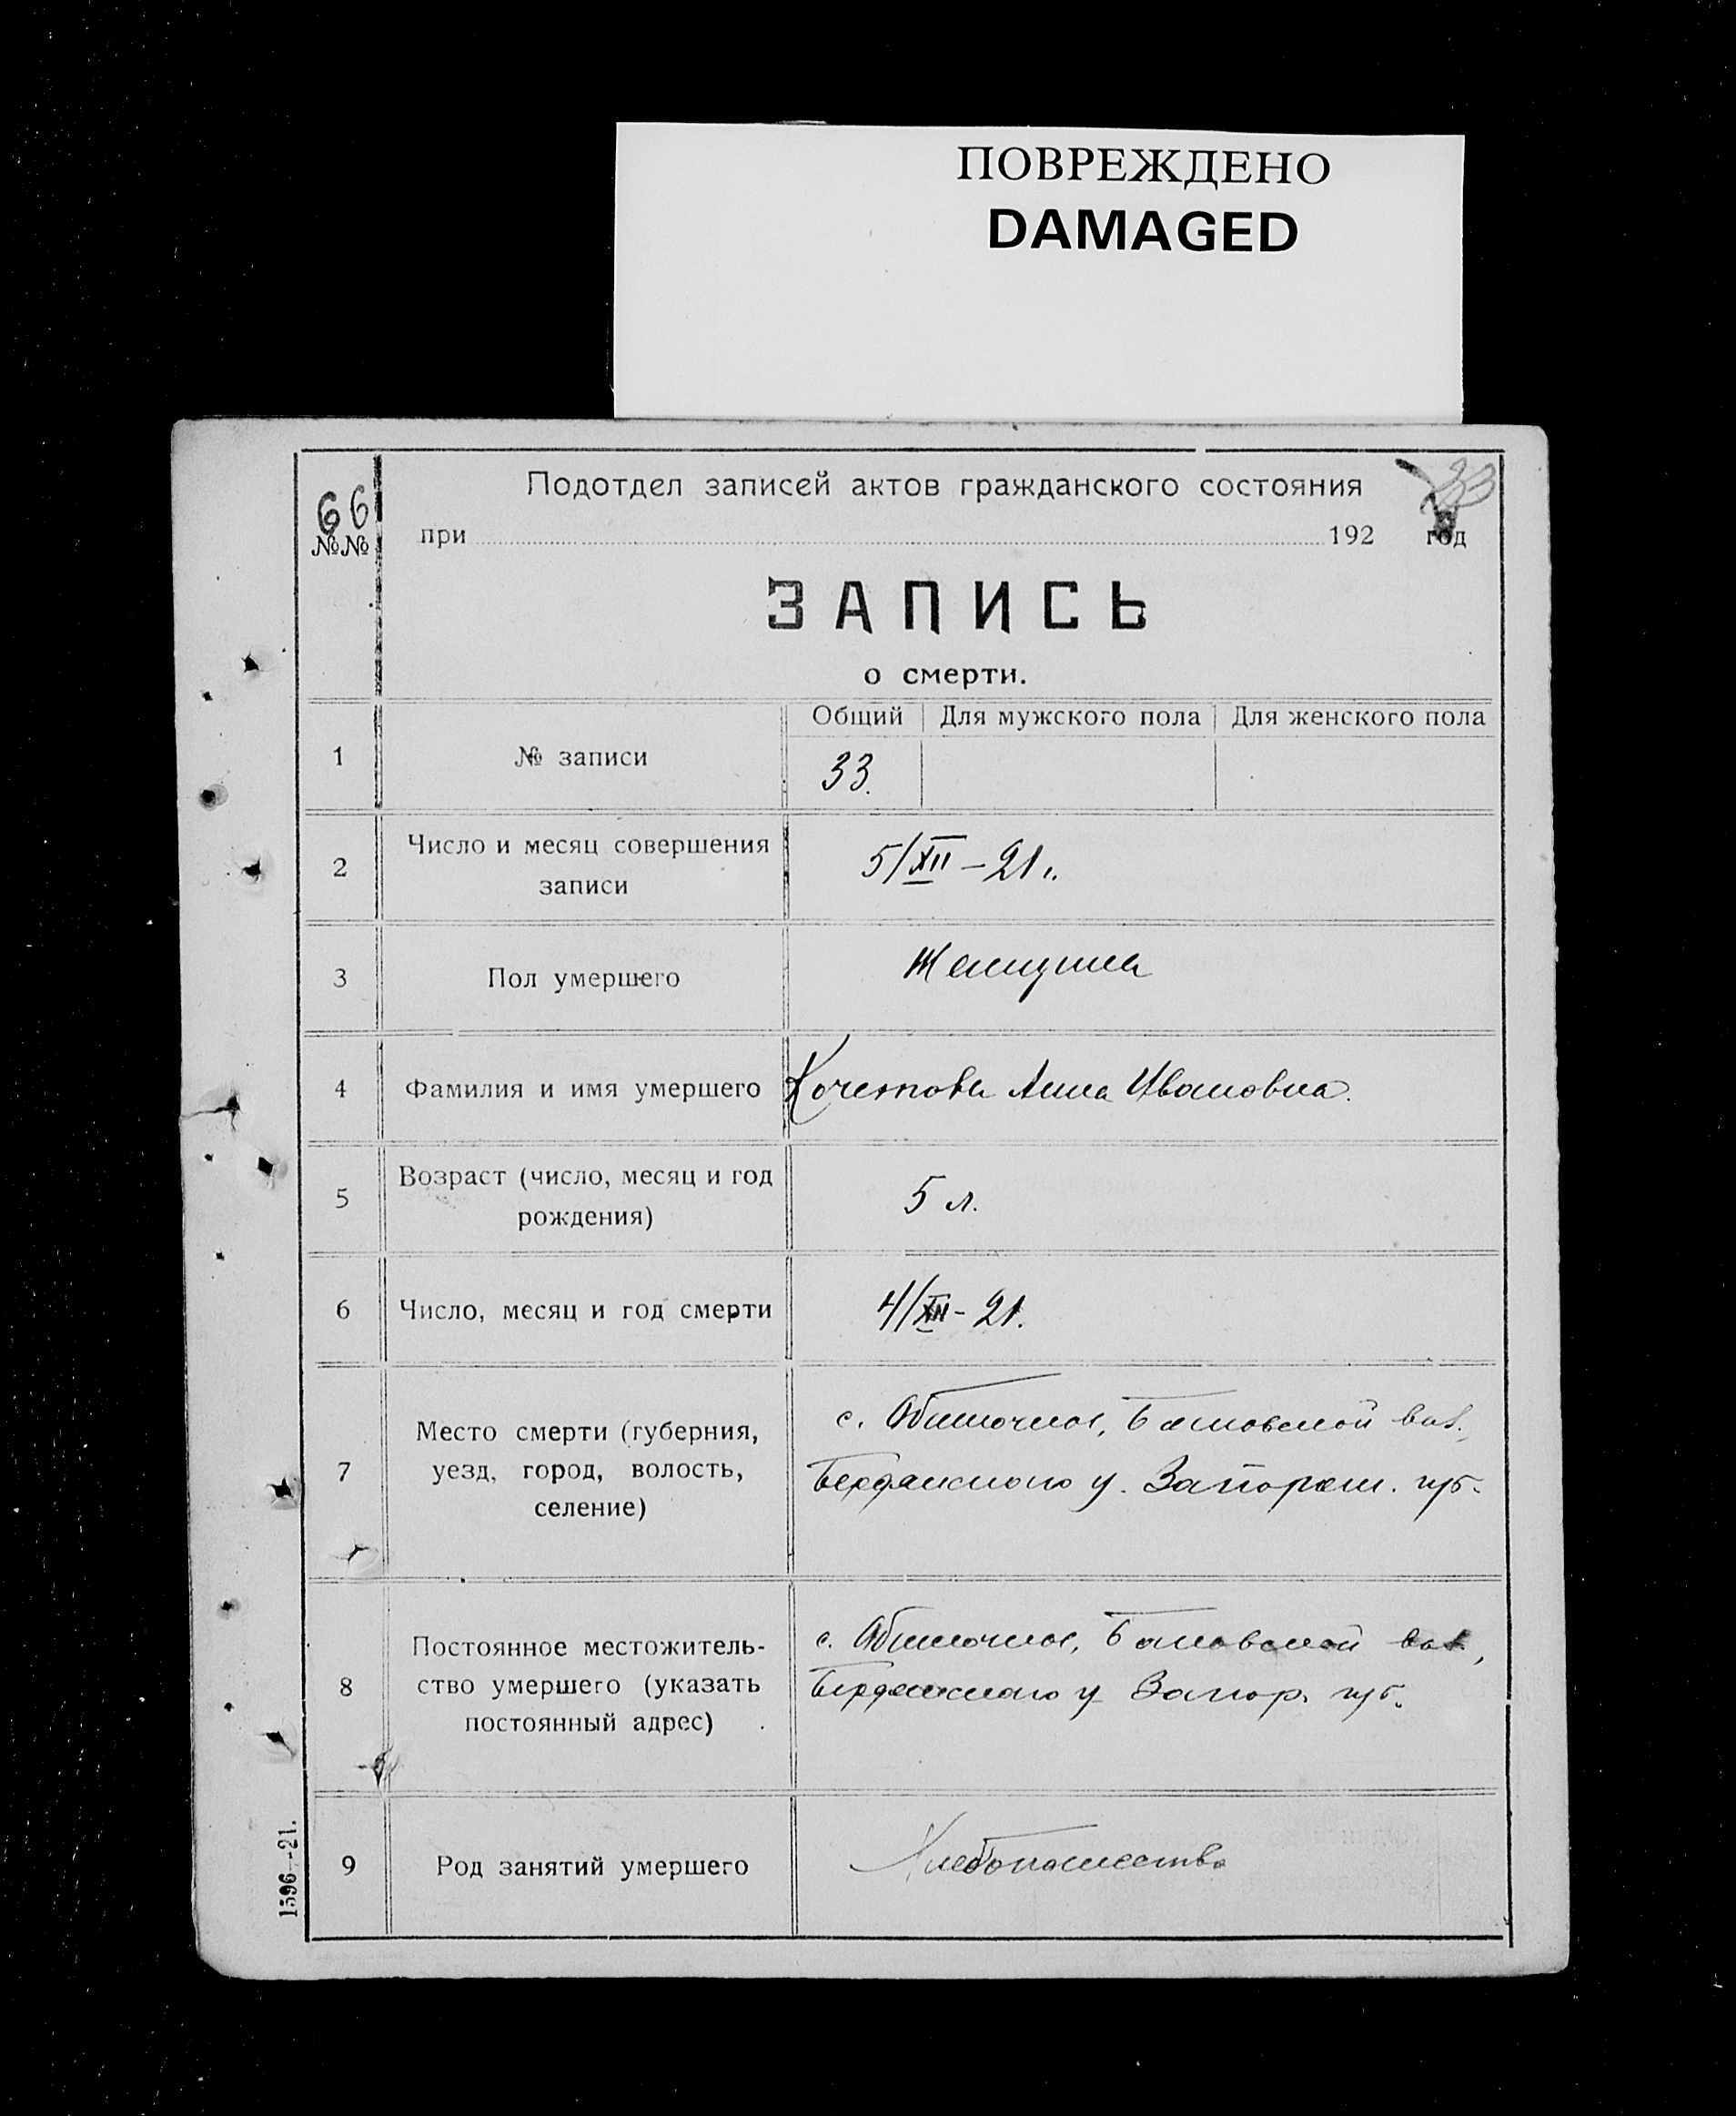 ПОВРЕЖДЕНО
DAMAGED
66
№№
Подотдел записей актов гражданского состояния
33
при 192 год
ЗАПИСЬ
о смерти.
Общий Для мужского пола Для женского пола
1 № записи 33.
2 Число и месяц совершения
записи
5/XII – 21 г.
3 Пол умершего Женщина
4 Фамилия и имя умершего Кочетова Анна Ивановна.
5 Возраст (число, месяц и год
рождения)
5 л.
6 Число, месяц и год смерти 4/XII - 21.
7 Место смерти (губерния,
уезд, город, волость,
селение)
с. Обиточное, вол.
Бердянского у. Запорож. губ.
8 Постоянное местожитель-
ство умершего (указать
постоянный адрес)
с. Обиточное, вол.,
Бердянского у Запор. губ.
9 Род занятий умершего Хлебопашество
1596–21.